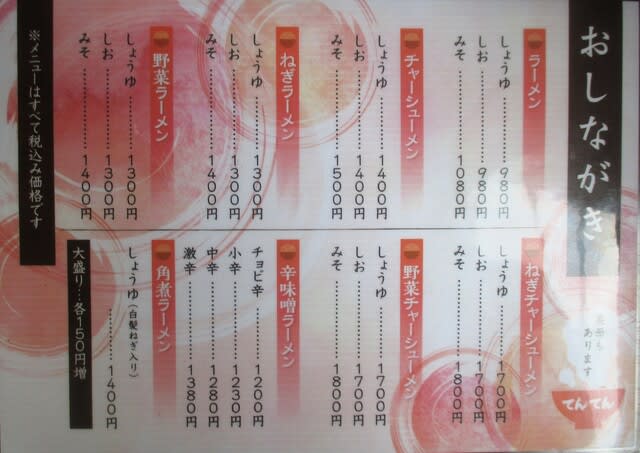 おしながき
ラーメン
しょうゆ…………980円
しお…………980円
みそ…………1080円
チャーシューメン
しょうゆ…………1400円
しお…………1400円
みそ…………1500円
ねぎラーメン
しょうゆ…………1300円
しお…………1300円
みそ…………1400円
野菜ラーメン
しょうゆ…………1300円
しお…………1300円
みそ…………1400円
※メニューはすべて税込み価格です
ねぎチャーシューメン
しょうゆ…………1700円
しお…………1700円
みそ…………1800円
野菜チャーシューメン
しょうゆ…………1700円
しお…………1700円
みそ…………1800円
辛味噌ラーメン
チョビ辛…………1200円
小辛…………1230円
中辛…………1280円
激辛…………1380円
角煮ラーメン
しょうゆ(白髪ねぎ入り)
…………1400円
大盛り…各150円増
あります
てんてん